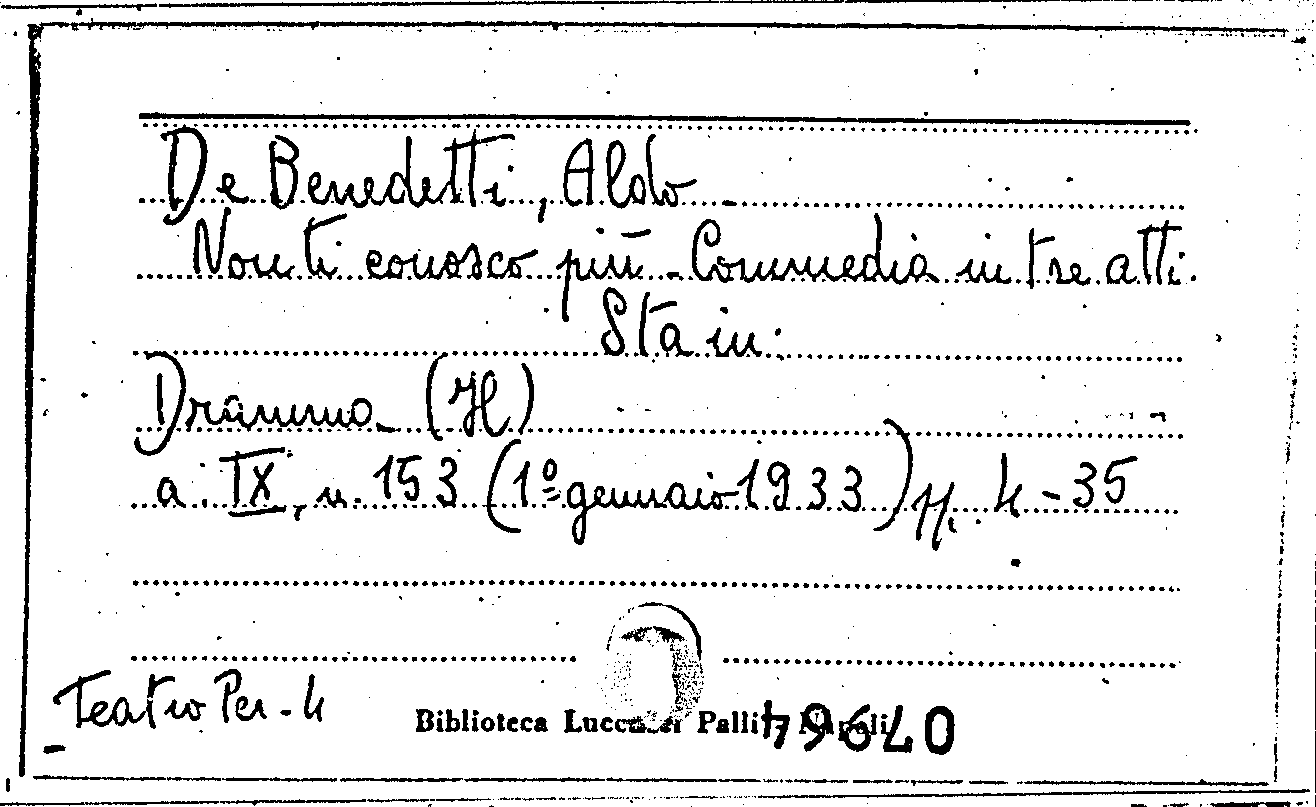 De Benedetti, Aldo -
Non ti conosco più - Commedia in tre atti.
Sta in:
Dramma (Il)
a. IX, n. 153 (1º gennaio 1933) pp. 4-35
Teatro Per. 4
Biblioteca Lucchesi Palli - Napoli
07964